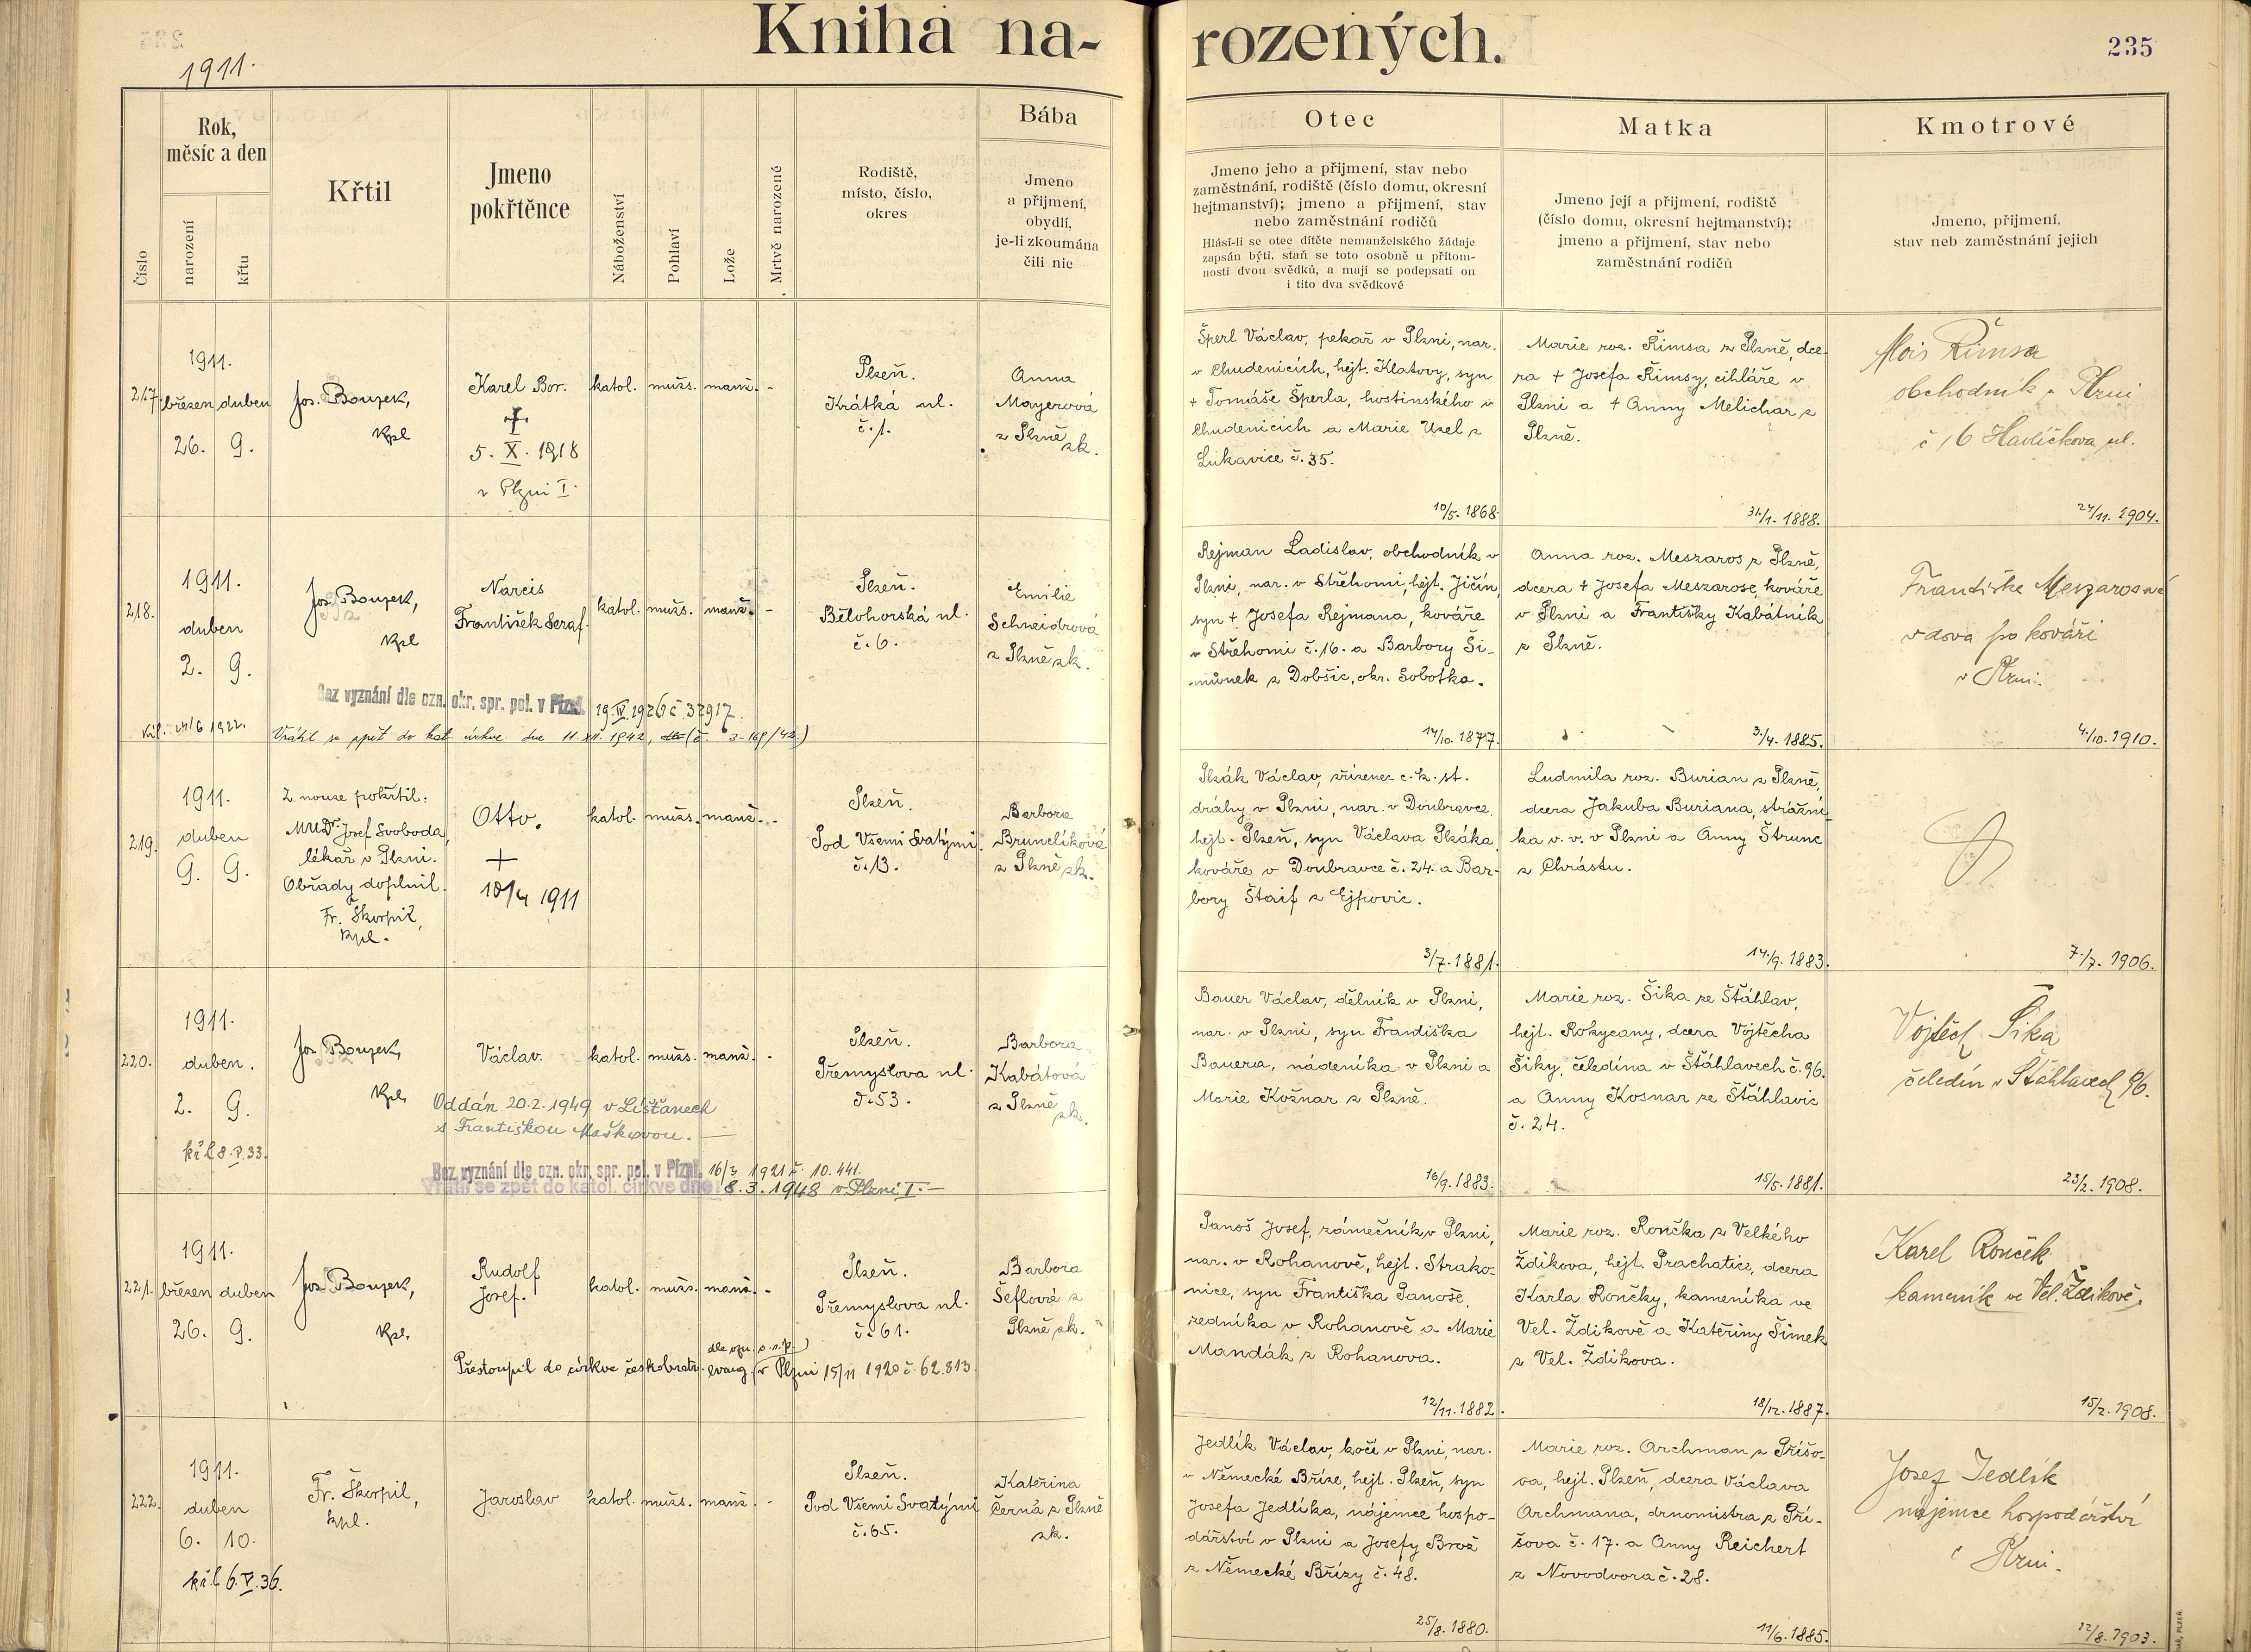 Kniha na-
rozených.
235
1911.
Číslo
Rok,
měsíc a den
narození
křtu
Křtil
Jmeno
pokřtěnce
Náboženství
Pohlaví
Lože
Mrtvě narozené
Rodiště,
místo, číslo,
okres
Bába
Jmeno
a přijmení,
obydlí,
je-li zkoumána
čili nic
Otec
Jmeno jeho a přijmení, stav nebo
zaměstnání, rodiště (číslo domu, okresní
hejtmanství); jmeno a přijmení, stav
nebo zaměstnání rodičů
Hlásí-li se otec dítěte nemanželského žádaje
zapsán býti, staň se toto osobně u přítom-
nosti dvou svědků, a mají se podepsati on
i tito dva svědkové
Matka
Jmeno její a přijmení, rodiště
(číslo domu, okresní hejtmanství);
jmeno a přijmení, stav nebo
zaměstnání rodičů
Kmotrové
Jmeno, přijmení,
stav neb zaměstnání jejich
217.
1911.
březen duben
26. 9.
Jos. Bouzek,
kpl
Karel Bor.
†
5. X. 1918
v Plzni I.
katol. mužs. manž. -
Plzeň.
Krátká ul.
č. 1.
Anna
Mayerová
z Plzně zk.
Šperl Václav, pekař v Plzni, nar.
v Chudenicích, hejt. Klatovy, syn
+ Tomáše Šperla, hostinského v
Chudenicích a Marie Uzel z
Lukavice č. 35.
10/5. 1868.
Marie roz. Římsa z Plzně, dce-
ra + Josefa Římsy, cihláře v
Plzni a + Anny Melichar z
Plzně.
31./1. 1888.
Alois Římsa
obchodník v Plzni
č 16 Havlíčkova ul.
24/11. 1904.
218.
1911.
duben
2. 9.
Jos. Bouzek,
kpl
Narcis
František Seraf.
katol. mužs. manž. -
Plzeň.
Bělohorská ul.
č. 6.
Emilie
Schneidrová
z Plzně zk.
Bez vyznání dle ozn. okr. spr. pol. v Plzni 19. IV. 1926 č 32917.
Vrátil se zpět do kat. církve dne 11. XII. 1942,
Rejman Ladislav, obchodník v
Plzni, nar. v Střehomi, hejt. Jičín,
syn + Josefa Rejmana, kováře
v Střehomi č. 16. a Barbory Ši-
můnek z Dobšic, okr. Sobotka.
14/10. 1877.
Anna roz. Meszaros z Plzně,
dcera + Josefa Meszarose, kováře
v Plzni a Františky Kabátník
z Plzně.
3./4. 1885.
Františka Meszarosová
vdova po kováři
v Plzni.
4./10. 1910.
219.
1911.
duben
9. 9.
Z nouze pokřtil:
MUDr. Josef Svoboda,
lékař v Plzni.
Obřady doplnil
Fr. Škorpil,
kpl.
Otto.
+
10/4 1911
katol. mužs. manž. -
Plzeň.
Pod Všemi Svatými
č. 13.
Barbora
Brunclíková
z Plzně zk.
Plzák Václav, zřízenec c. k. st.
dráhy v Plzni, nar. v Doubravce,
hejt. Plzeň, syn Václava Plzáka,
kováře v Doubravce č. 24. a Bar-
bory Štaif z Ejpovic.
3/7. 1881.
Ludmila roz. Burian z Plzně,
dcera Jakuba Buriana, strážní-
ka v. v. v Plzni a Anny Štrunc
z Chrástu.
14./9. 1883.
7./7. 1906.
220.
1911.
duben.
2. 9.
kř. l. 8. V. 33.
Jos. Bouzek,
kpl.
Václav.
katol. mužs. manž. -
Plzeň.
Přemyslova ul.
č. 53.
Barbora
Kabátová
z Plzně zk.
Oddán 20.2.1949 v Líšťanech
s Františkou Maškovou.
Bez vyznání dle ozn. okr. spr. pol. v Plzni 16/3 1921 č. 10.441.
Vrátil se zpět do katol. církve dne 8.3.1948 v Plzni I.
Bauer Václav, dělník v Plzni,
nar. v Plzni, syn Františka
Bauera, nádeníka v Plzni a
Marie Kožnar z Plzně.
16/9. 1883.
Marie roz. Šika ze Šťáhlav,
hejt. Rokycany, dcera Vojtěcha
Šiky, čeledína v Šťáhlavech č. 96.
a Anny Kosnar ze Šťáhlavic
č. 24.
15/5. 1881.
Vojtěch Šika
čeledín v Šťáhlavech 96.
23/2. 1908.
221.
1911.
březen duben
26. 9.
Jos. Bouzek,
kpl.
Rudolf
Josef.
katol. mužs. manž. -
Plzeň.
Přemyslova ul.
č. 61.
Barbora
Šeflová z
Plzně zk.
dle ozn. o. s. p.
Přestoupil do církve českobratr. evang. (v Plzni 15/11 1920 č. 62.813.
Panoš Josef, zámečník v Plzni,
nar. v Rohanově, hejt. Strako-
nice, syn Františka Panoše,
zedníka v Rohanově a Marie
Mandák z Rohanova.
12/11. 1882.
Marie roz. Rončka z Velkého
Ždikova, hejt. Prachatice, dcera
Karla Rončky, kameníka ve
Vel. Ždikově a Kateřiny Šimek
z Vel. Ždikova.
18/12. 1887.
Karel Ronček
kameník ve Vel. Ždikově.
15/2. 1908.
222.
1911.
duben
6. 10.
kř. l. 6. V. 36.
Fr. Škorpil,
kpl.
Jaroslav
katol. mužs. manž. -
Plzeň.
Pod Všemi Svatými
č. 65.
Kateřina
Černá z Plzně
zk.
Jedlík Václav, kočí v Plzni, nar.
v Německé Bříze, hejt. Plzeň, syn
Josefa Jedlíka, nájemce hospo-
dářství v Plzni a Josefy Brož
z Německé Břízy č. 48.
25/8. 1880.
Marie roz. Archman z Příšo-
va, hejt. Plzeň, dcera Václava
Archmana, drnomistra z Pří-
šova č. 17. a Anny Reichert
z Novodvora č. 28.
11/6. 1885.
Josef Jedlík
nájemce hospodářství
v Plzni.
12/8. 1903.